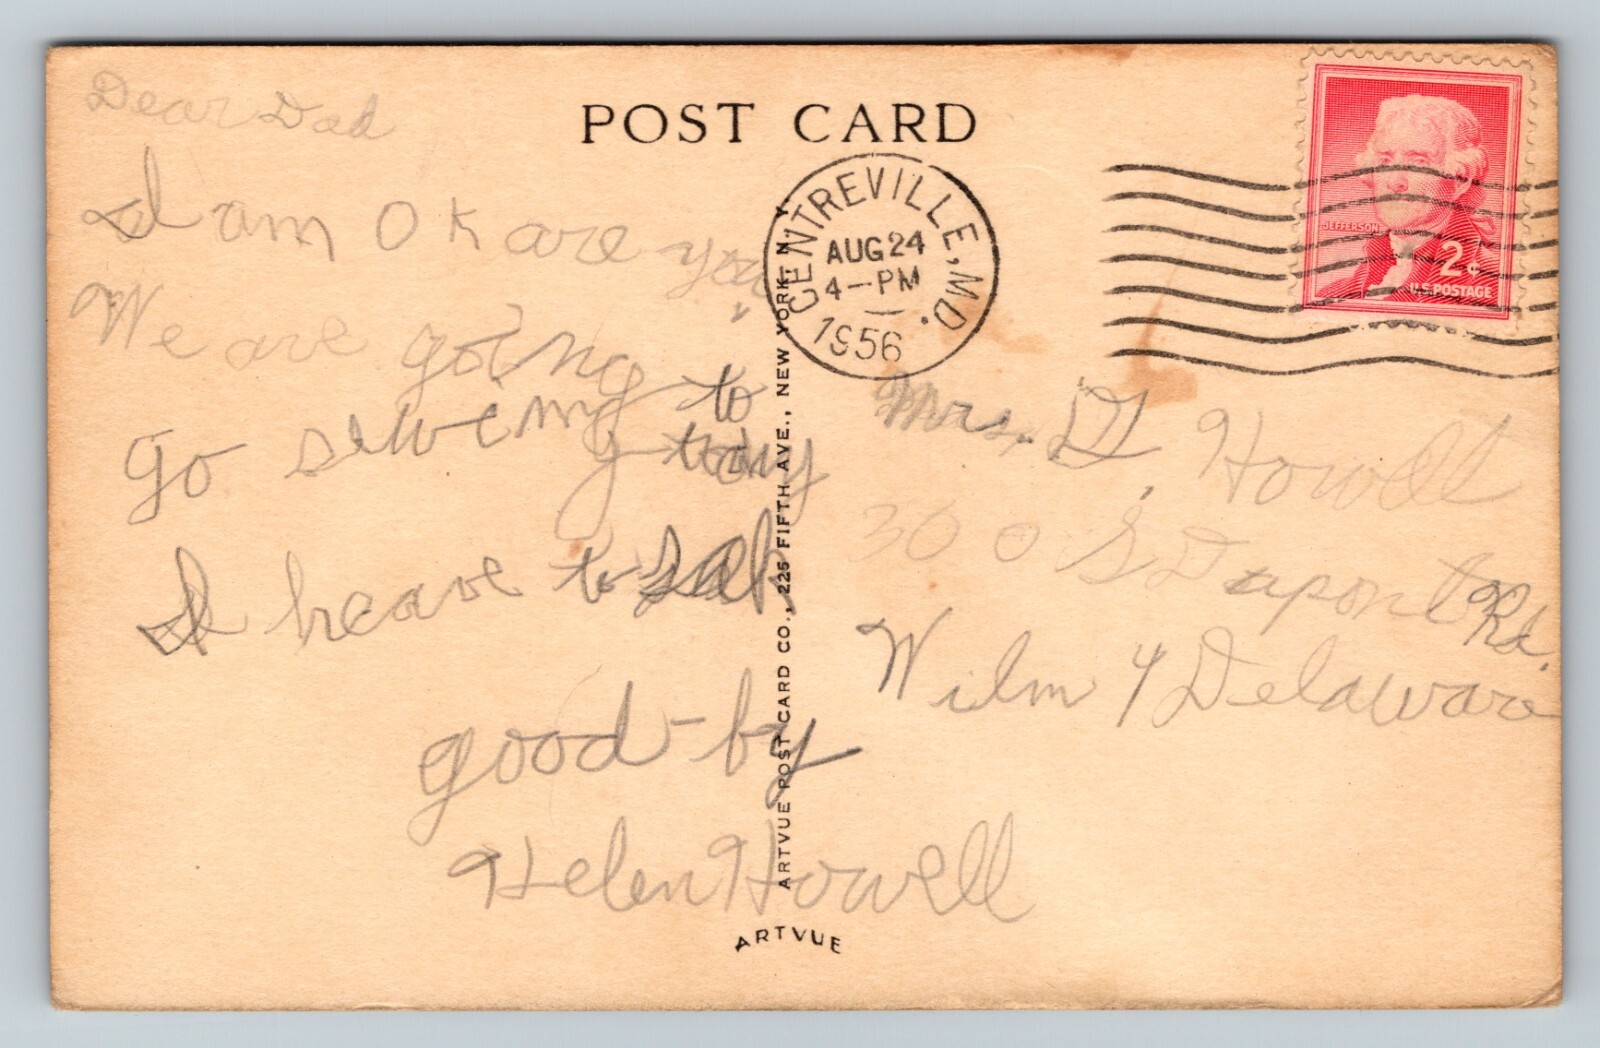 POST CARD
Dear Dad
I am O K are you
We are going to
go sweming today
I heave to
good-by
Helen Howell
CENTREVILLE, MD.
AUG 24
4-PM
1956
JEFFERSON
2¢
U.S. POSTAGE
Mrs. Howell
300 S Dupont Rd.
Wilm Delaware
ARTVUE POST CARD CO., 225 FIFTH AVE., NEW YORK, N.Y.
ARTVUE